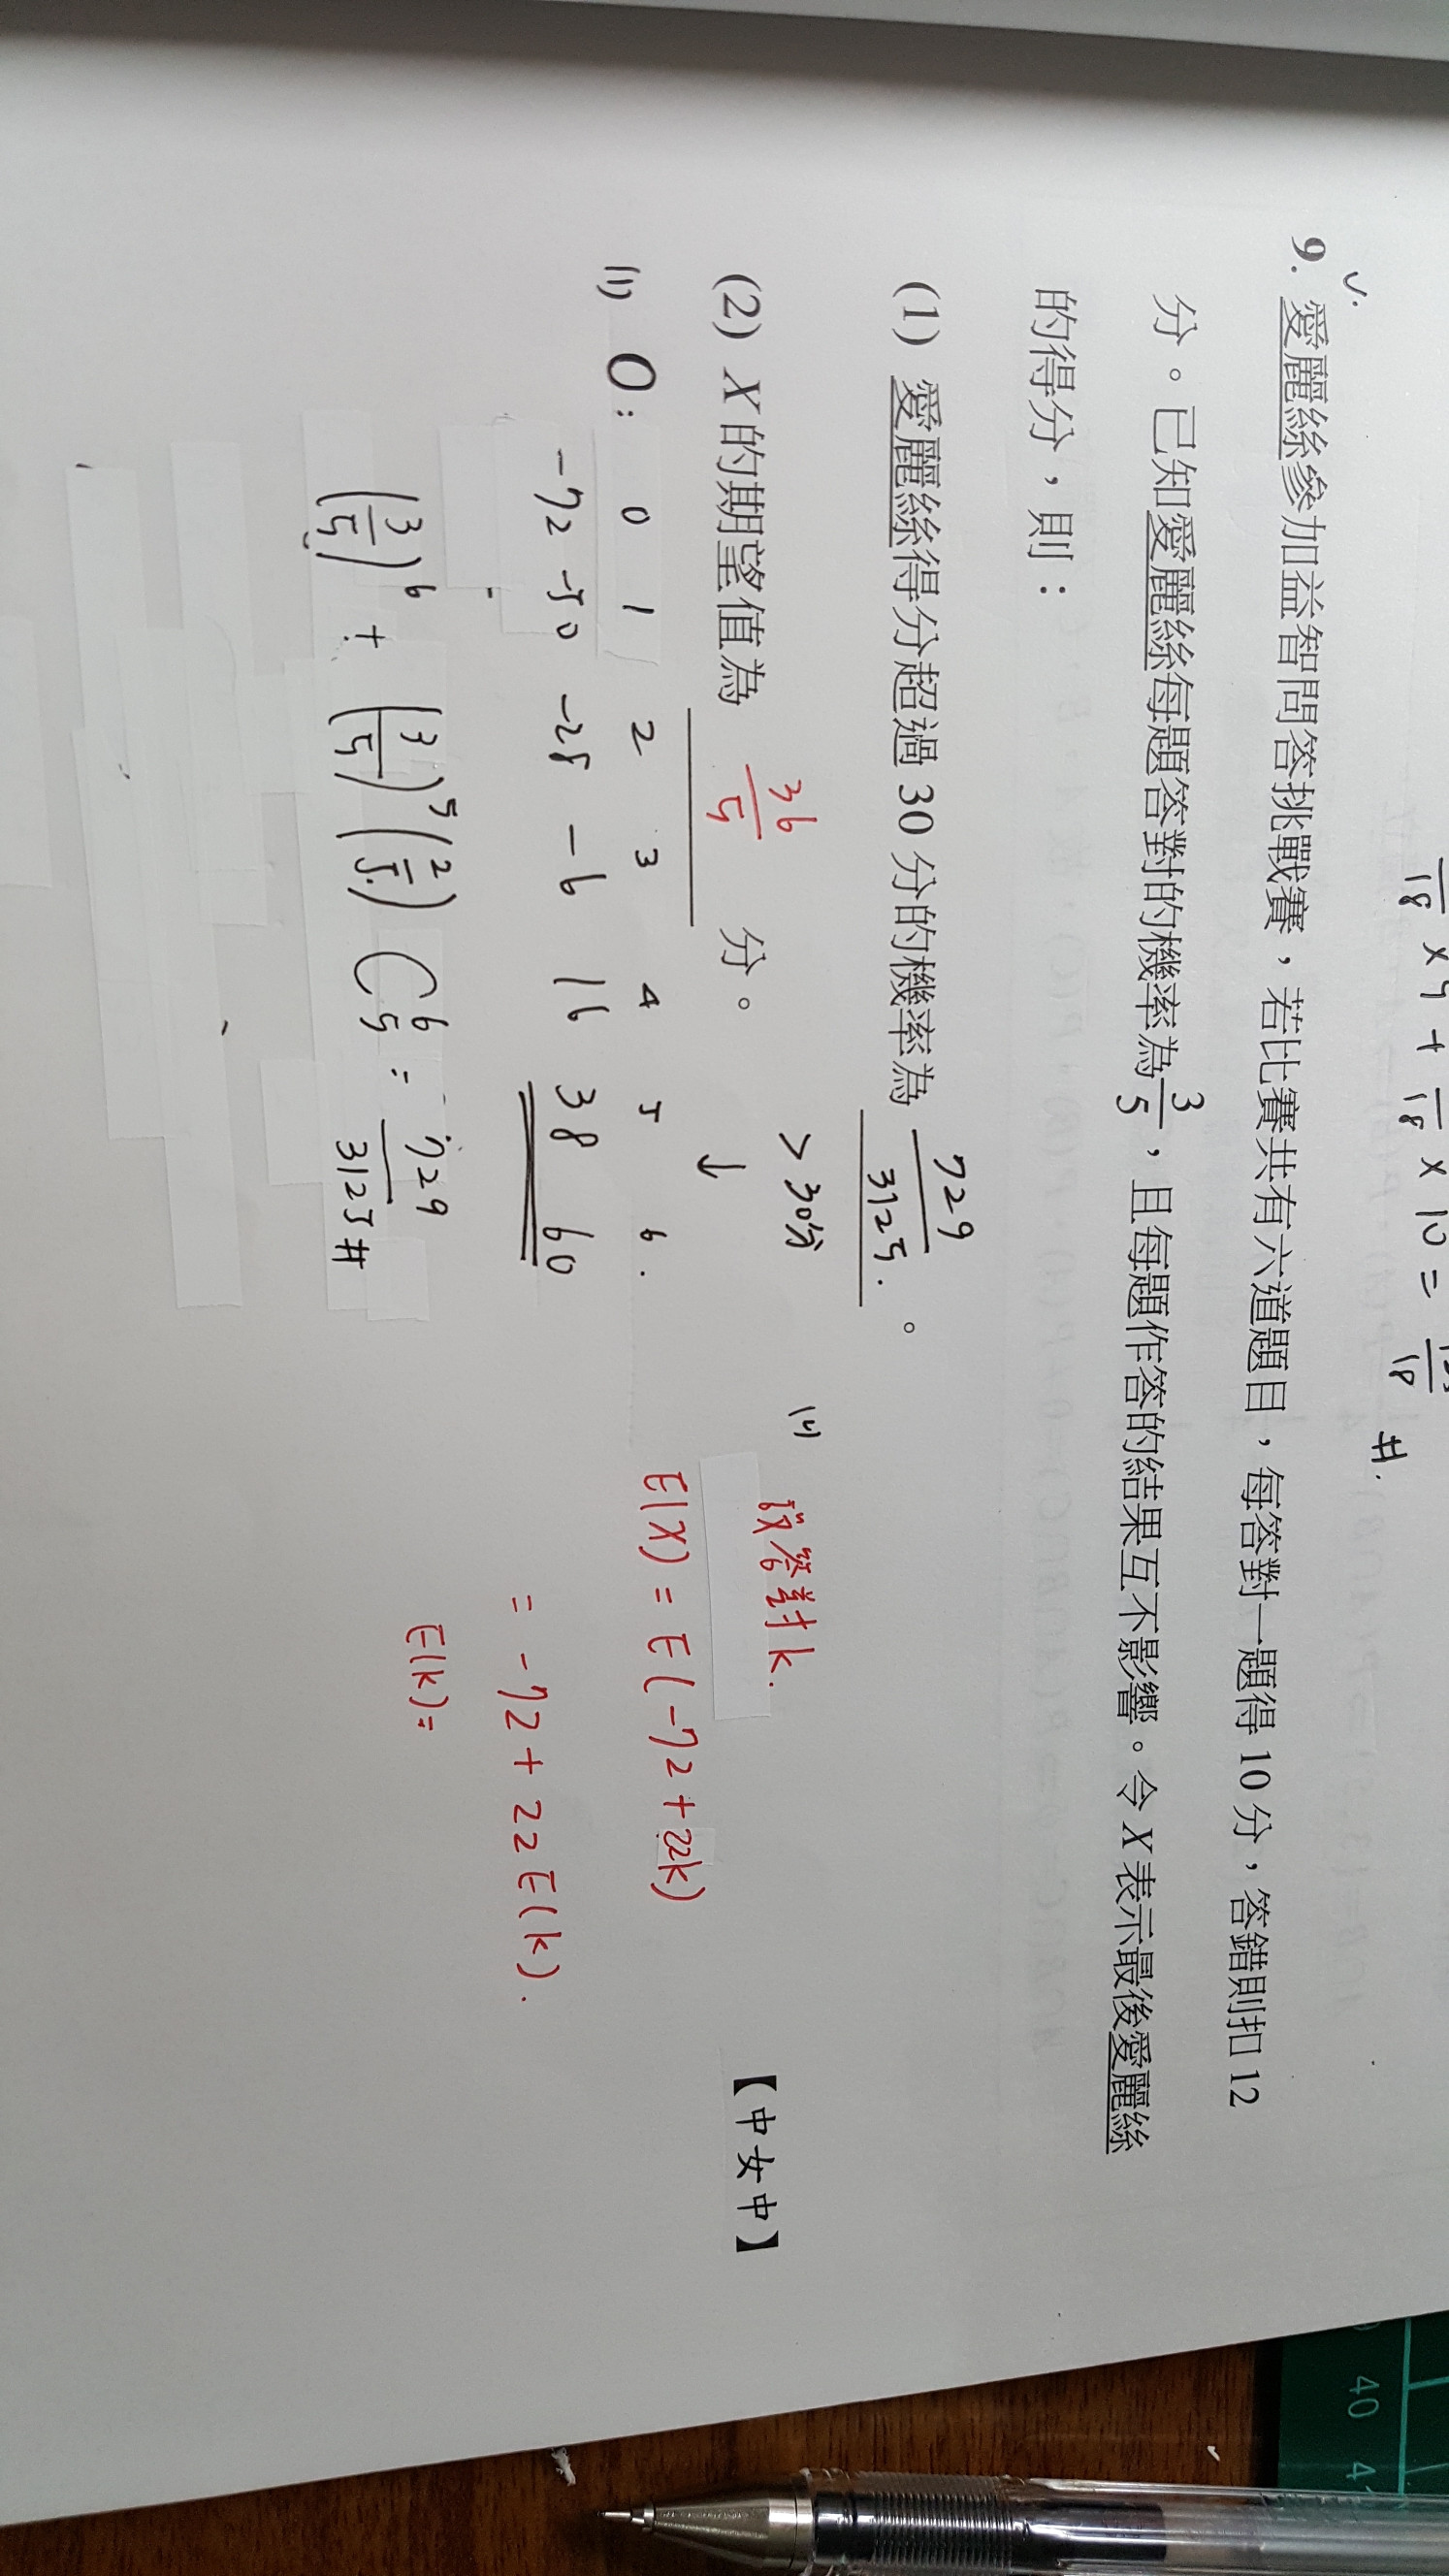 18 × 9 + 18 × 10 = 18 #.
9. 愛麗絲參加益智問答挑戰賽，若比賽共有六道題目，每答對一題得 10 分，答錯則扣 12
分。已知愛麗絲每題答對的機率為 3/5，且每題作答的結果互不影響。令 X 表示最後愛麗絲
的得分，則：
(1) 愛麗絲得分超過 30 分的機率為 729/3125. 。
(2) X 的期望值為 36/5 分。
【中女中】
>30分
↓
(1) O: 0 1 2 3 4 5 6.
-72 -50 -28 -6 16 38 60
(3/5)^6 + (3/5)^5 (2/5) C^6_5 = 729/3125 #
(2) 設答對 k.
E(X) = E(-72+22k)
= -72 + 22E(k).
E(k) =
40